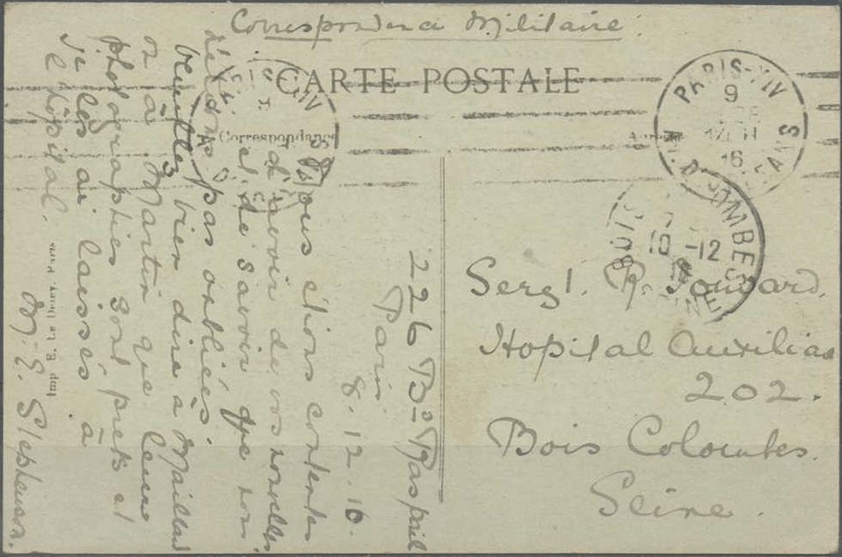 Correspondance Militaire.
CARTE POSTALE
Correspondance
PARIS-XIV
9
16
BOIS COLOMBES
10 -12
SEINE
226 Bd Raspail
Paris
8.12.16.
Nous étions contentes
d'avoir de vos nouvelles
et de savoir que nous
n'étions pas oubliées.
Veuillez bien dire à Maillard
ou à Martin que leurs
photographies sont prêts et
je les ai laissés à
l'hôpital.
M. E. Stephenson.
Imp E. Le Deley, Paris
Sergt. R.
Hopital Auxiliai
202.
Bois Colombes.
Seine.